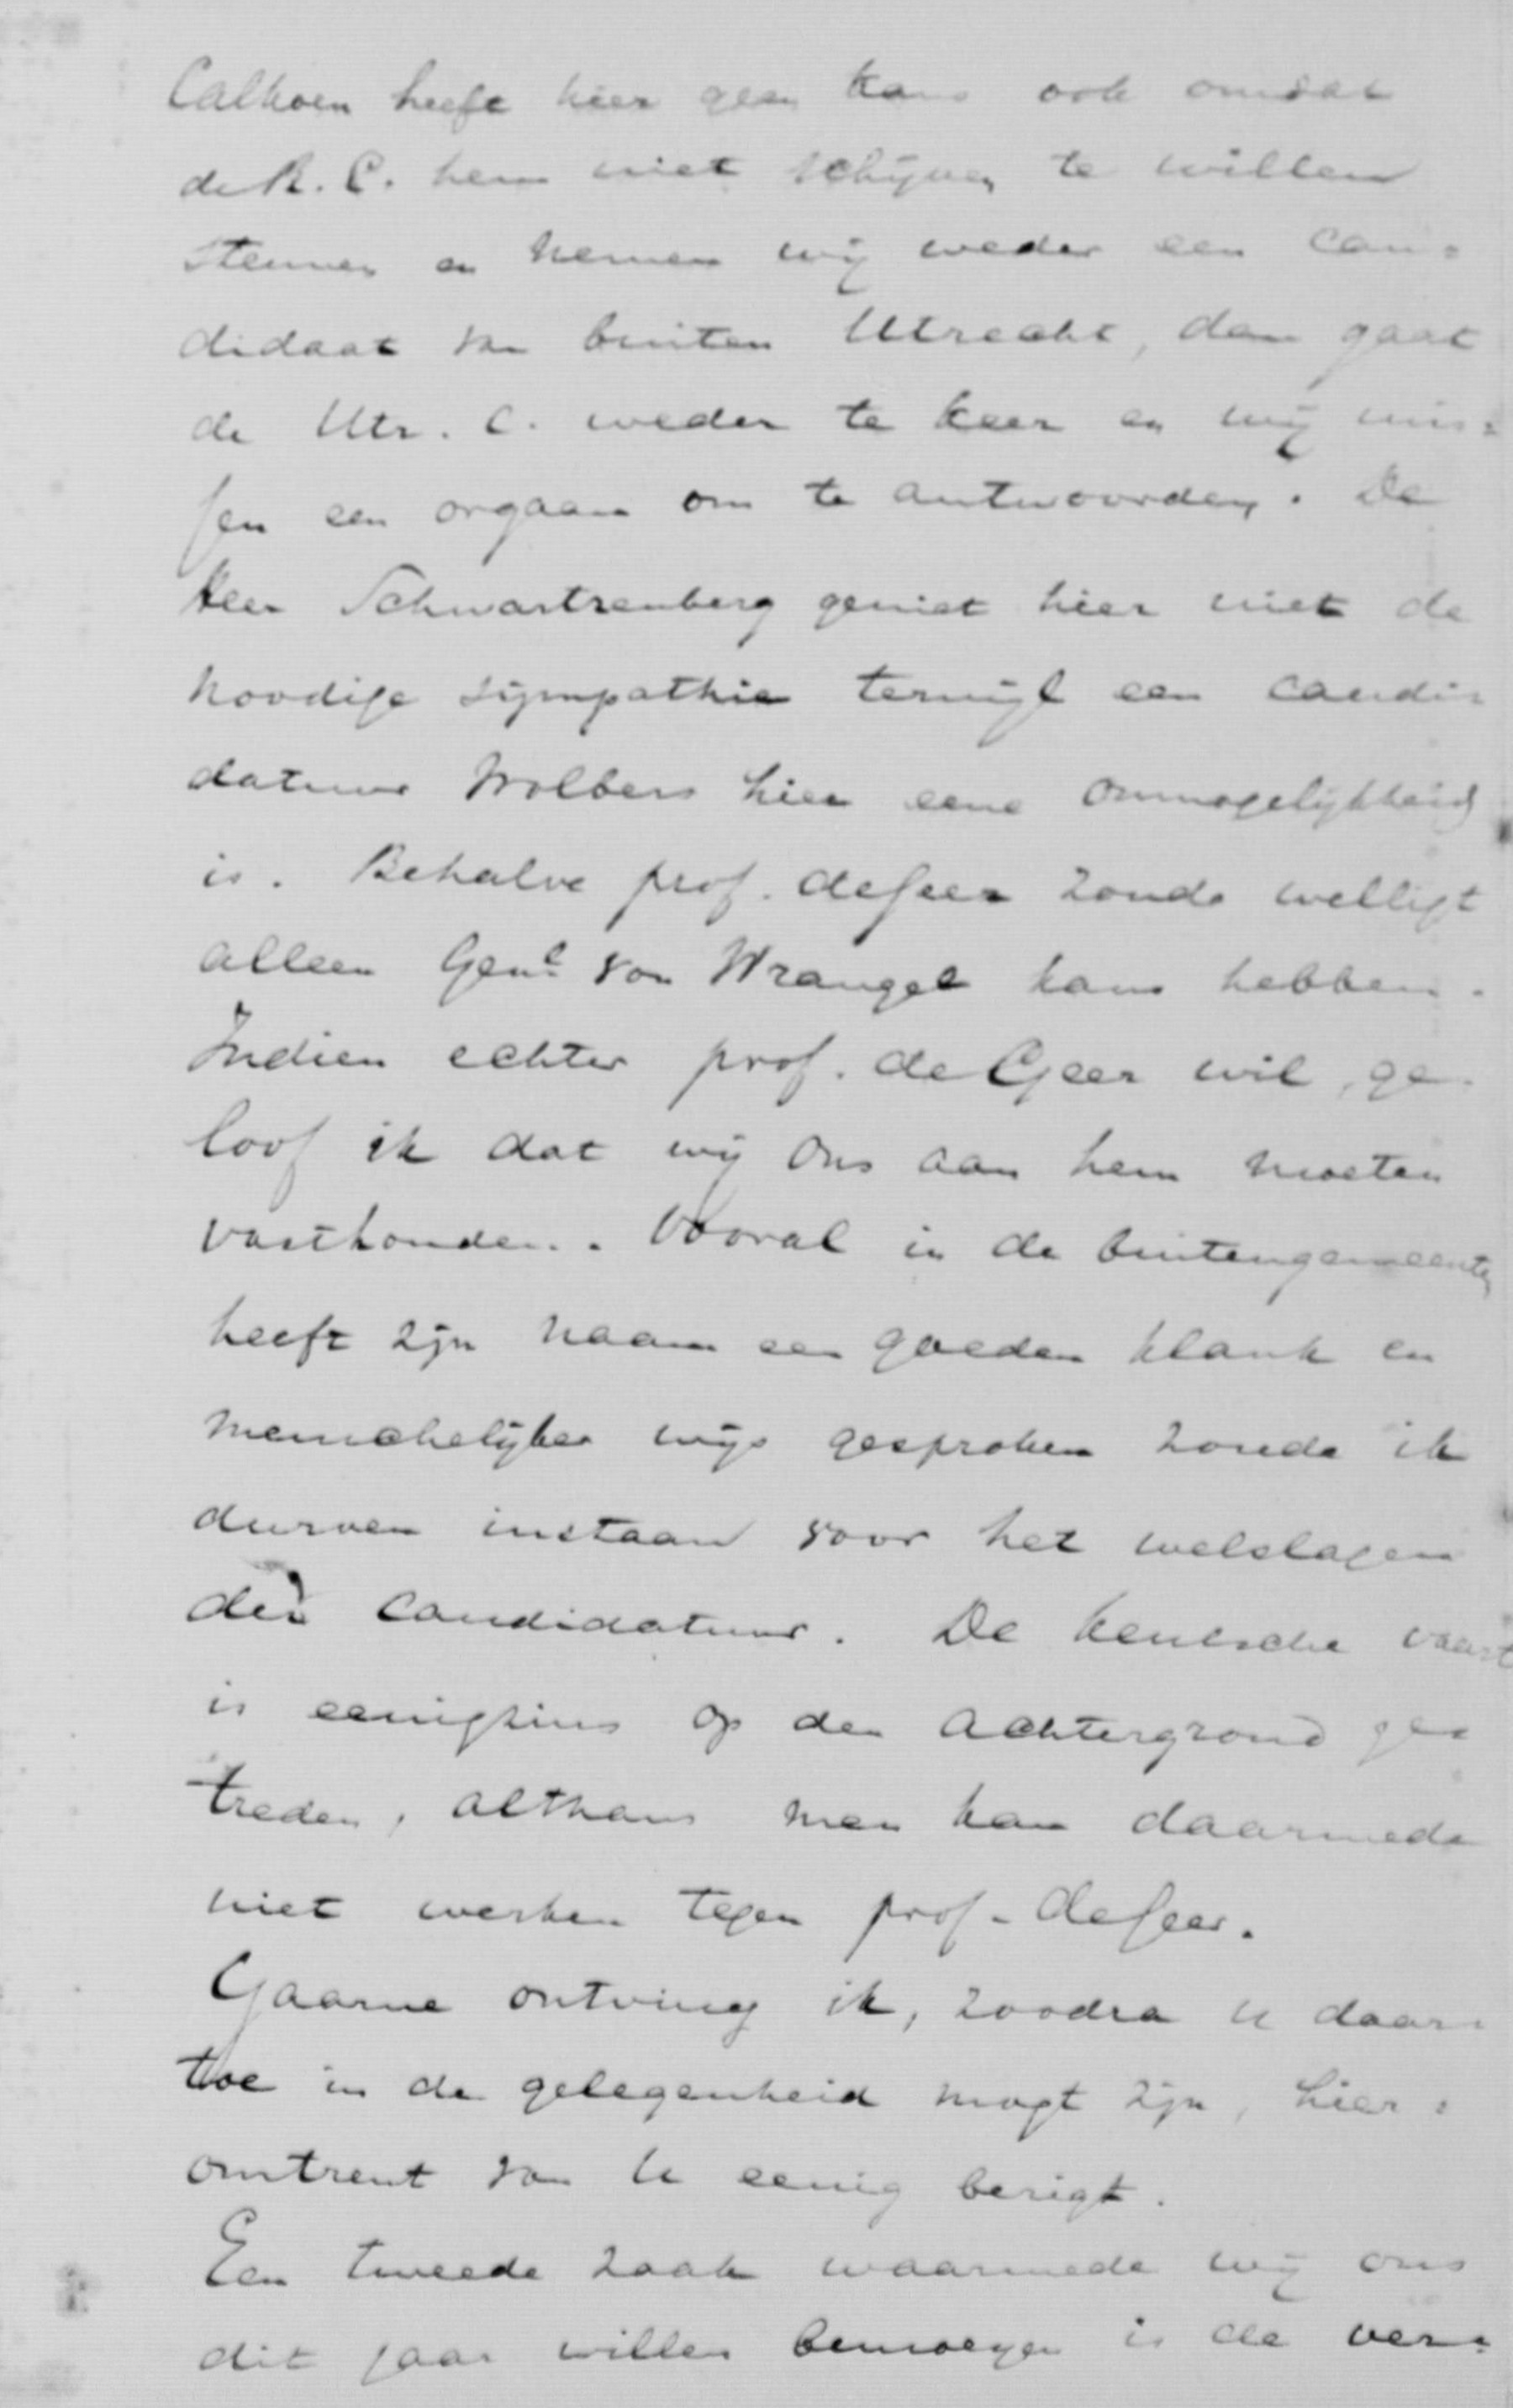 Calkoen heeft hier geen kans ook omdat
de R. C. hem niet schijnen te willen
stemmen en nemen wij weder een can=
didaat van buiten Utrecht, dan gaat
de Utr. C. weder te keer en wij mis=
sen een orgaan om te antwoorden. De
Heer Schwartzenberg geniet hier niet de
noodige sympathie terwijl een candi=
datuur Wolbers hier eene onmogelijkheid
is. Behalve prof. de Geer zoude welligt
alleen Genl. von Wrangel kans hebben.
Indien echter prof. de Geer wil, ge=
loof ik dat wij ons aan hem moeten
vasthouden. Vooral in de buitengemeenten
heeft zijn naam een goeden klank en
menschelijker wijs gesproken zoude ik
durven instaan voor het welslagen
der candidatuur. De Keulsche vaart
is eenigzins op den achtergrond ge=
treden, althans men kan daarmede
niet werken tegen prof. de Geer.
Gaarne ontving ik, zoodra U daar=
toe in de gelegenheid mogt zijn, hier=
omtrent van U eenig berigt.
Een tweede zaak waarmede wij ons
dit jaar willen bemoeyen is de ver=